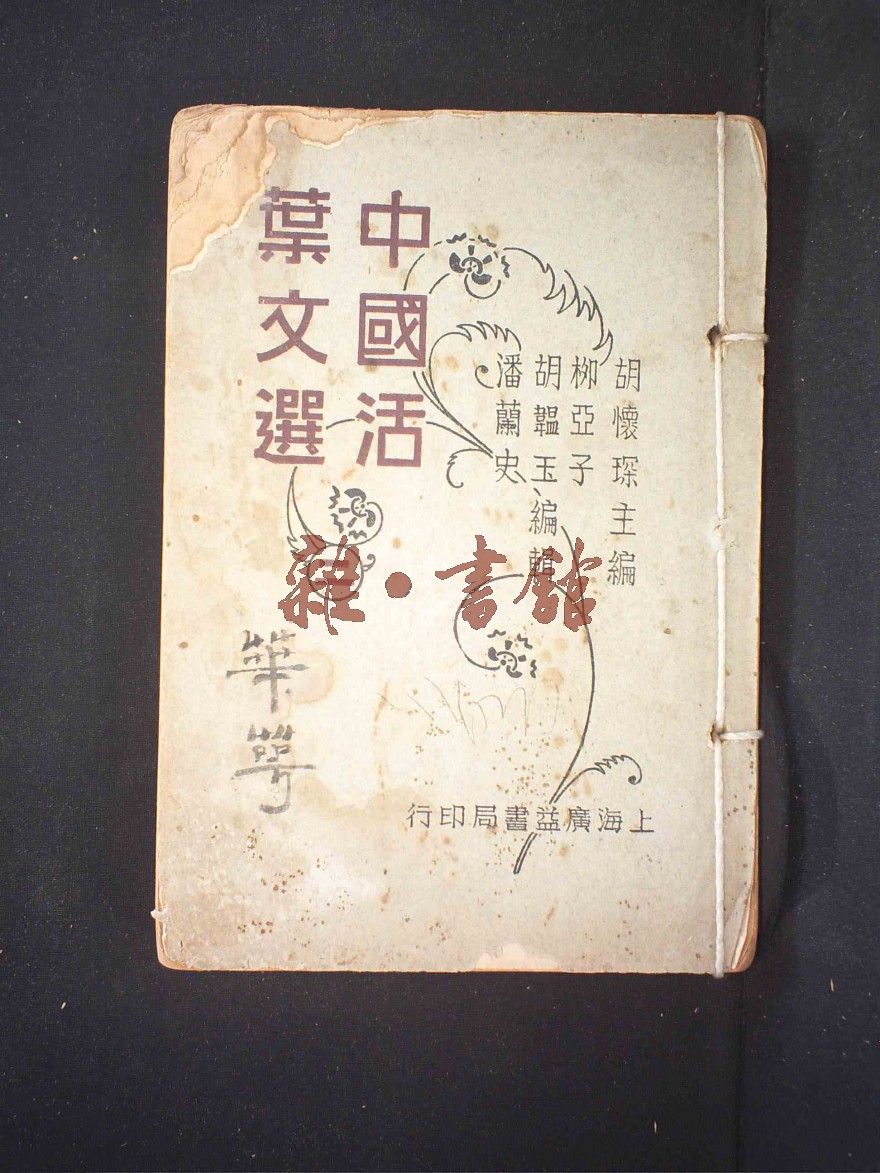 中國活
葉文選
胡懷琛主編
柳亞子
胡韞玉編輯
潘蘭史
雜·書館
華萼
上海廣益書局印行